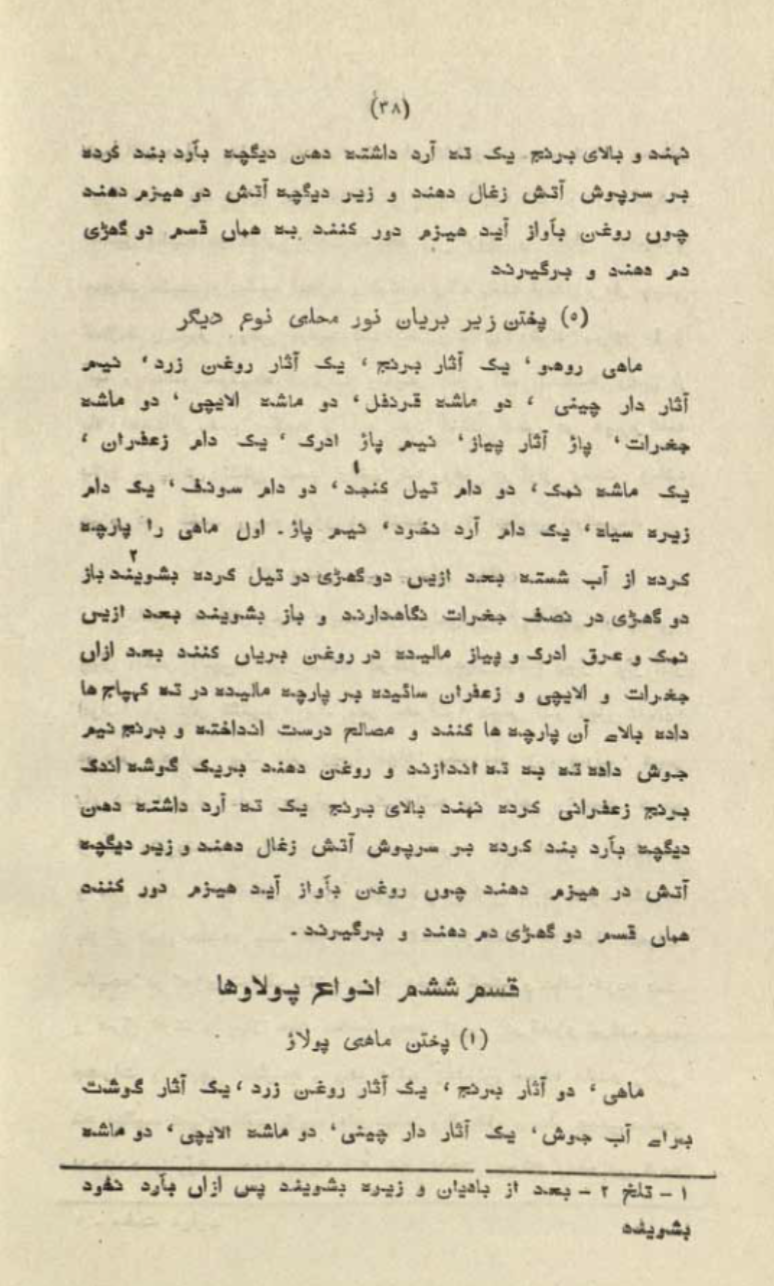 (۳۸)
نهند و بالای برنج یک ته آرد داشته دهن دیگچه بآرد بند کرده
بر سرپوش آتش زغال دهند و زیر دیگچه آتش دو هیزم دهند
چوں روغن بآواز آید هیزم دور کنند به هماں قسم دو گهڑی
دم دهند و برگیرند
(۵) پختن زیر بریان نور محلی نوع دیگر
ماهی روهو، یک آثار برنج، یک آثار روغن زرد، نیم
آثار دار چینی، دو ماشه قرنفل، دو ماشه الایچی، دو ماشه
جغرات، پاؤ آثار پیاز، نیم پاؤ ادرک، یک دام زعفران،
یک ماشه نمک، دو دام تیل کنجد۱، دو دام سونف، یک دام
زیره سیاه، یک دام آرد نخود، نیم پاؤ. اول ماهی را پارچه
کرده از آب شسته بعد ازیں دو گهڑی در تیل کرده بشویند۲ باز
دو گهڑی در نصف جغرات نگاهدارند و باز بشویند بعد ازیں
نمک و عرق ادرک و پیاز مالیده در روغن بریاں کنند بعد ازاں
جغرات و الایچی و زعفران سائیده بر پارچه مالیده در ته کهپاچ ها
داده بالاے آن پارچه ها کنند و مصالح درست انداخته و برنج نیم
جوش داده ته به ته اندازند و روغن دهند بریک گوشه اندک
برنج زعفرانی کرده نهند بالای برنج یک ته آرد داشته دهن
دیگچه بآرد بند کرده بر سرپوش آتش زغال دهند و زیر دیگچه
آتش در هیزم دهند چوں روغن بآواز آید هیزم دور کنند
هماں قسم دو گهڑی دم دهند و برگیرند.
قسم ششم انواع پولاوها
(۱) پختن ماهی پولاؤ
ماهی، دو آثار برنج، یک آثار روغن زرد، یک آثار گوشت
براے آب جوش، یک آثار دار چینی، دو ماشه الایچی، دو ماشه
۱ - تلخ ۲ - بعد از بادیان و زیره بشویند پس ازاں بآرد نخود
بشویند